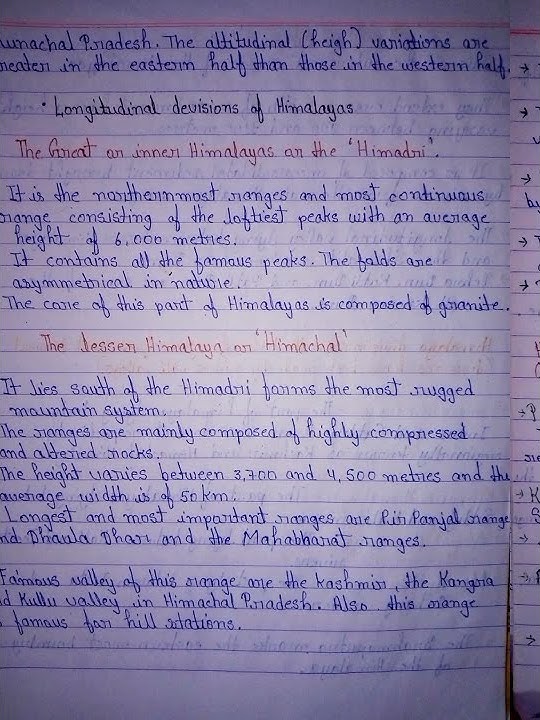 unachal Pradesh. The altitudinal (heigh) variations are
reater in the eastern half than those in the western half.
• Longitudinal devisions of Himalayas
The Great or inner Himalayas or the 'Himadri'.
It is the northernmost ranges and most continuous
range consisting of the loftiest peaks with an average
height of 6,000 metres.
It contains all the famous peaks. The folds are
asymmetrical in nature.
The core of this part of Himalayas is composed of granite.
The lesser Himalaya or 'Himachal'
It lies south of the Himadri forms the most rugged
mountain system.
The ranges are mainly composed of highly compressed
and altered rocks.
The height varies between 3,700 and 4,500 metres and the
average width is of 50 km.
Longest and most important ranges are Pir Panjal range
nd Dhaula Dhar and the Mahabharat ranges.
Famous valley of this range are the kashmir, the Kangra
d Kullu valley in Himachal Pradesh. Also this range
famous for hill stations.